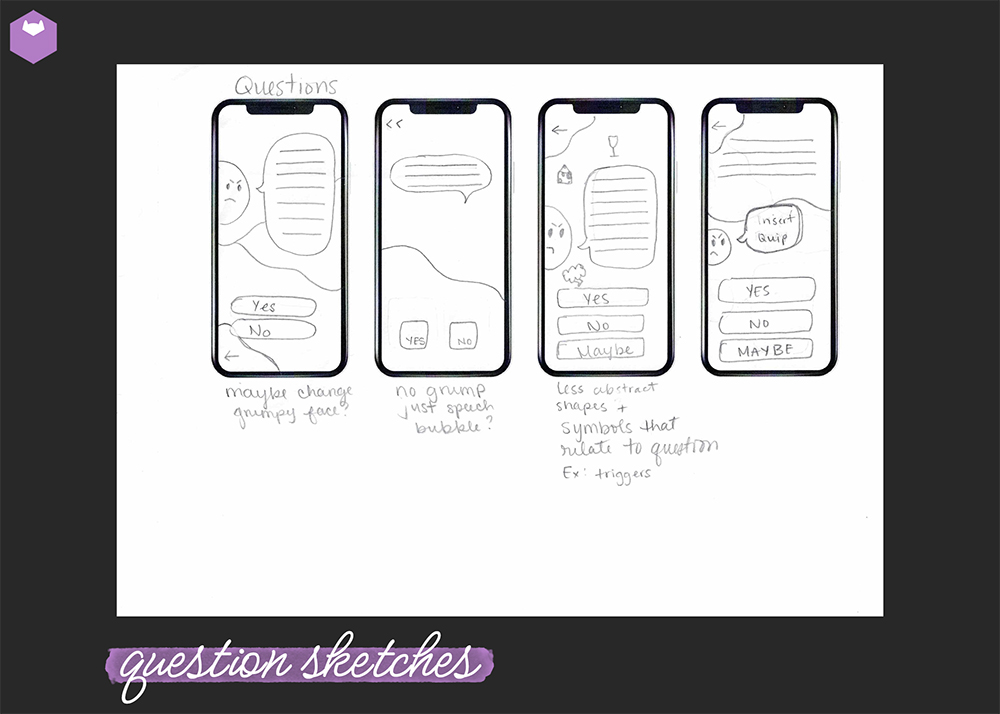 Questions
Yes
No
maybe change
grumpy face?
YES
NO
no grump
just speech
bubble?
Yes
No
Maybe
less abstract
shapes +
symbols that
relate to question
Ex: triggers
Insert
Quip
YES
NO
MAYBE
question sketches